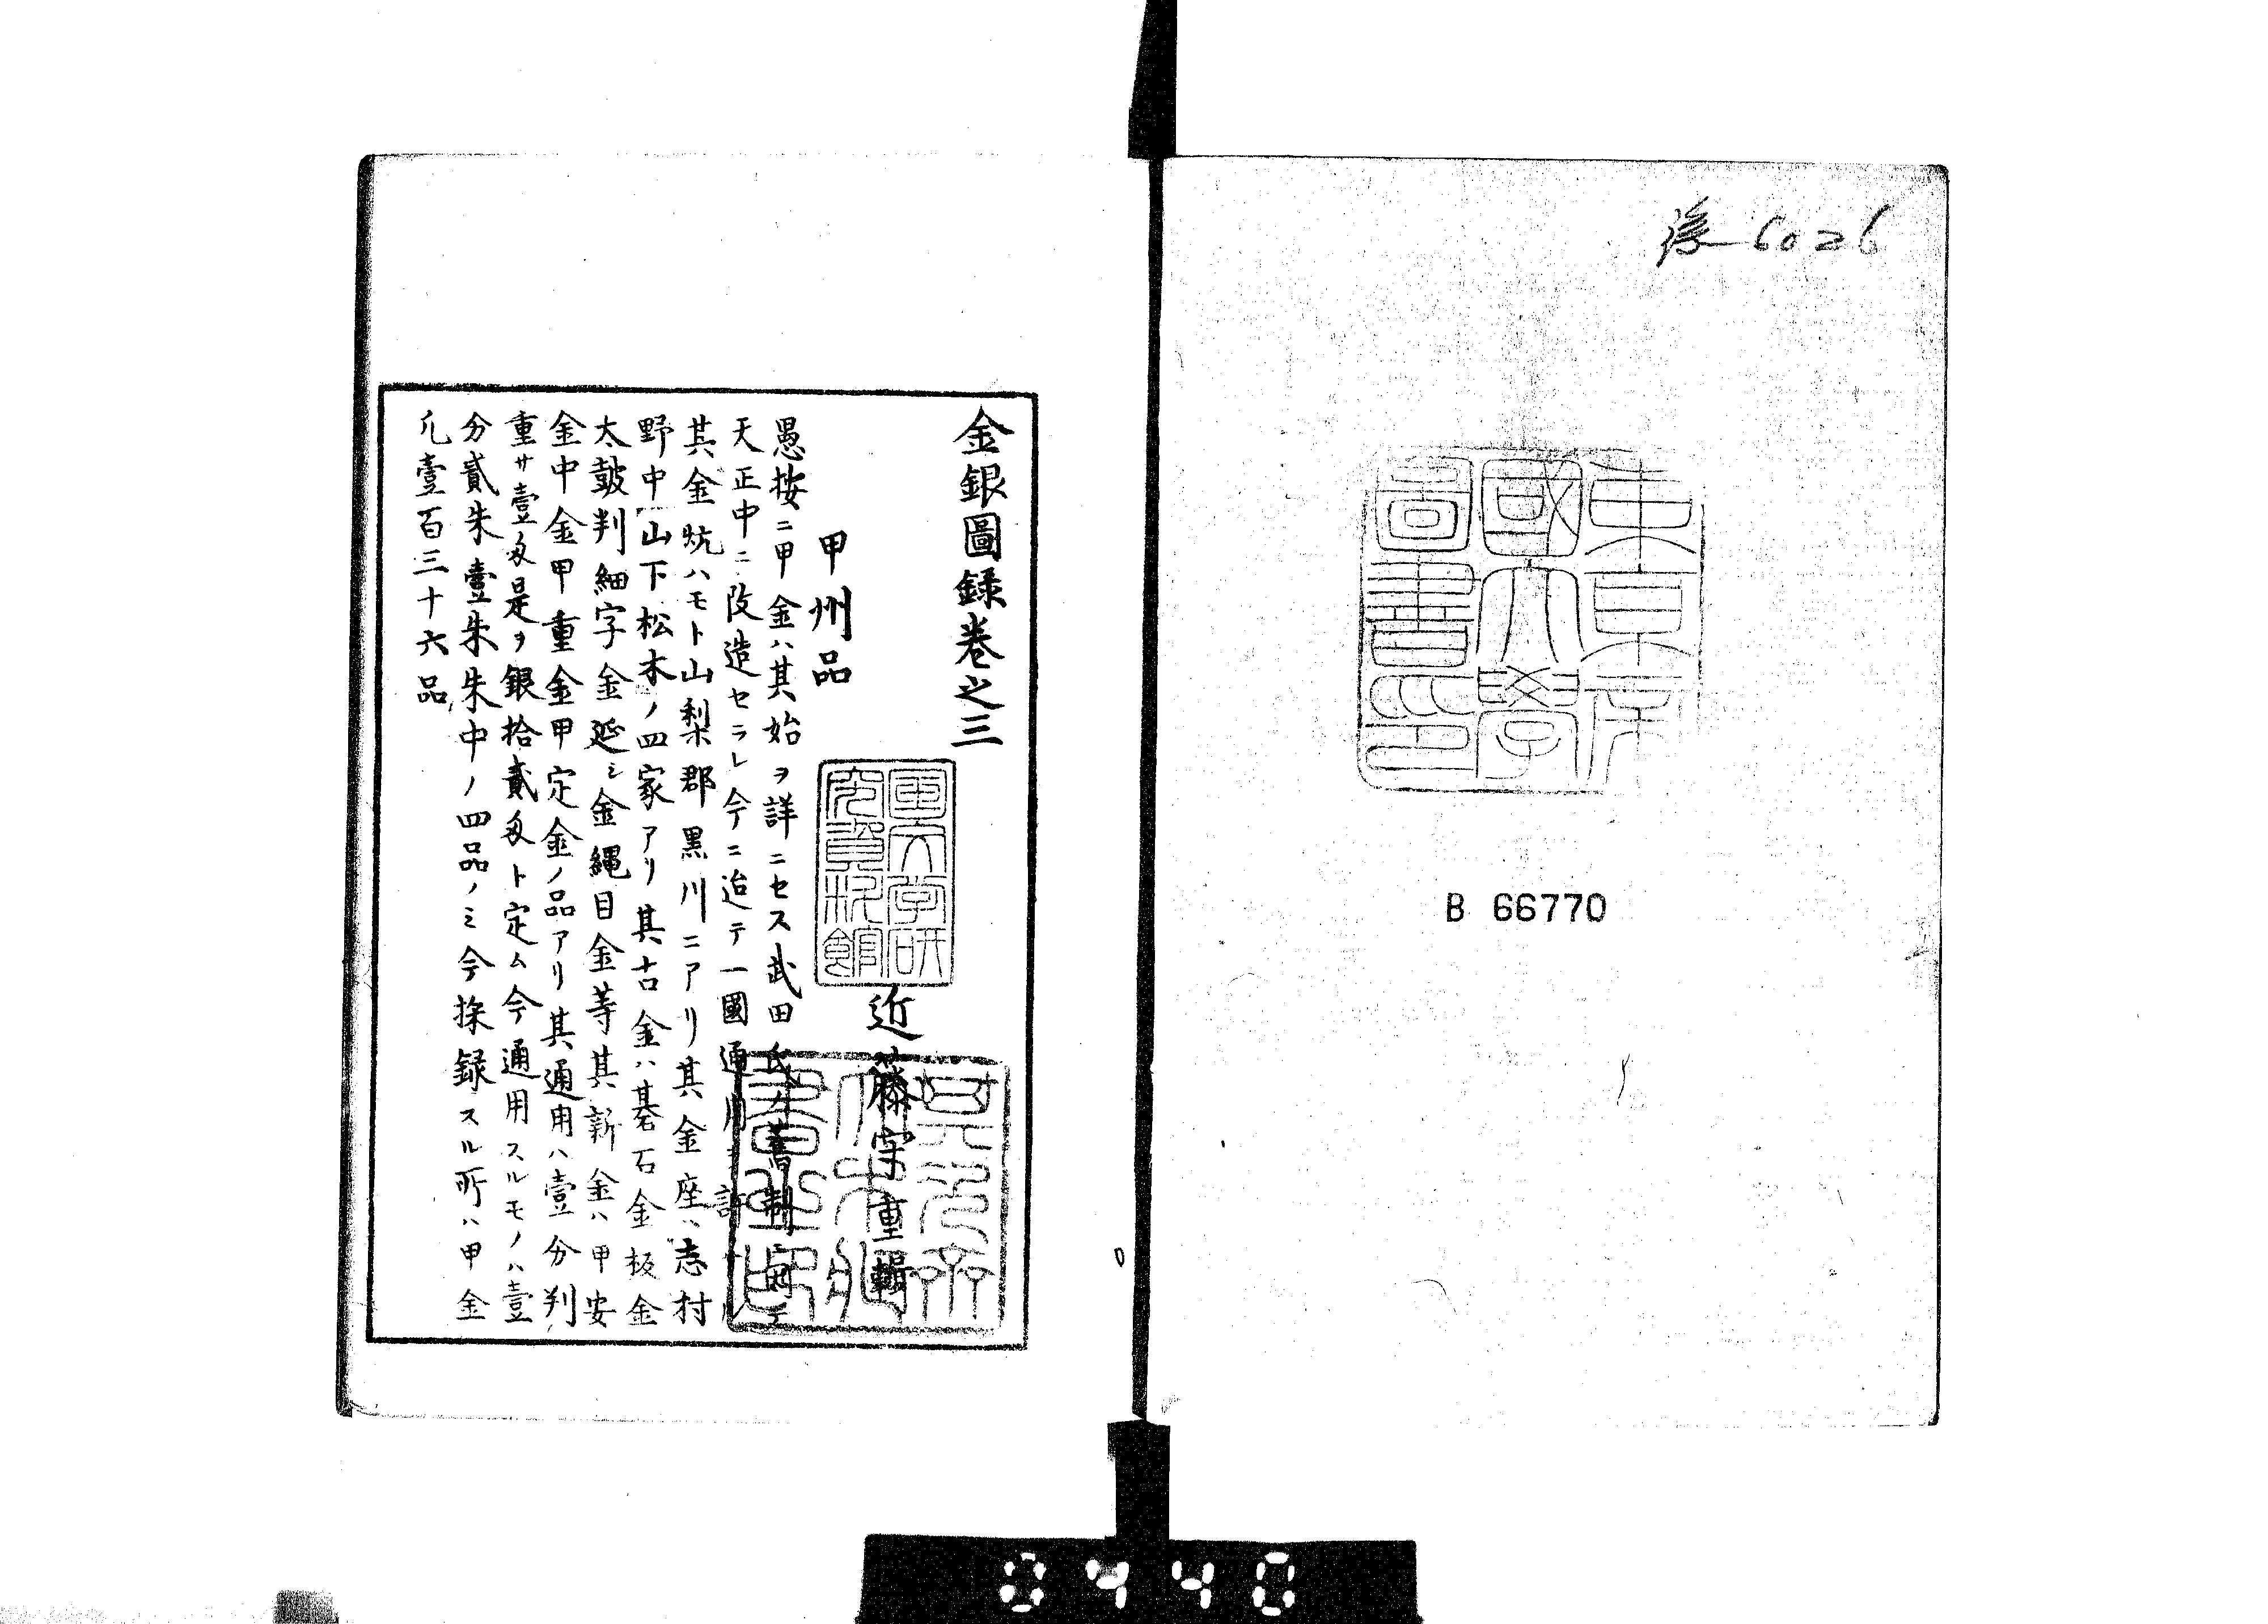 後 6026
東京帝
國大學
圖書印
B 66770
金銀圖録卷之三
近藤守重輯
甲州品
愚按ニ甲金ハ其始ヲ詳ニセス武田氏ノ舊制ニ
天正中ニ改造セラレ今ニ迨テ一國通用ヲ許
其金坑ハモト山梨郡黒川ニアリ其金座ハ志村
野中山下松木ノ四家アリ其古金ハ碁石金板金
太鼓判細字金延シ金縄目金等其新金ハ甲安
金中金甲重金甲定金ノ品アリ其通用ハ壹分判
重サ壹匁是ヲ銀拾貳匁ト定ム今通用スルモノハ壹
分貳朱壹朱朱中ノ四品ノミ今採録スル所ハ甲金
凢壹百三十六品
0740